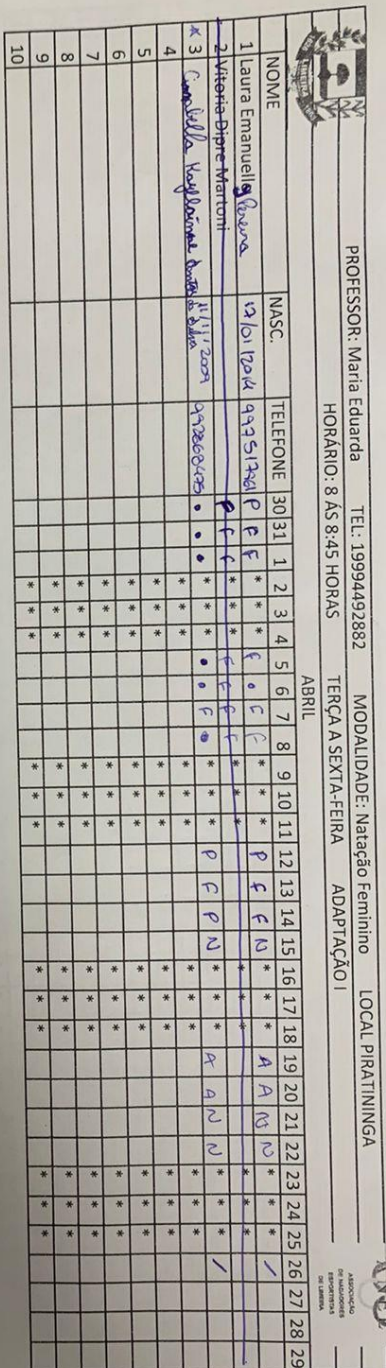 PROFESSOR: Maria Eduarda TEL: 19994492882 MODALIDADE: Natação Feminino LOCAL PIRATININGA
HORÁRIO: 8 ÁS 8:45 HORAS TERÇA A SEXTA-FEIRA ADAPTAÇÃO I
ASSOCIAÇÃO
DE NADADORES
ESPORTISTAS
DE LIMEIRA
ABRIL
NOME NASC. TELEFONE 30 31 1 2 3 4 5 6 7 8 9 10 11 12 13 14 15 16 17 18 19 20 21 22 23 24 25 26 27 28 29
1 Laura Emanuelly Pereira 17/01/2014 P F F * * * F • F F * * * P F F N * * * A A N N * * * /
2 Vitoria Dipre Martoni P F F * * * F F F F * * * * * * * * *
* 3 11/11/2009 992868475 • • • * * * • • F • * * * P F P N * * * A A N N * * * /
4 * * * * * * * * * * * *
5 * * * * * * * * * * * *
6 * * * * * * * * * * * *
7 * * * * * * * * * * * *
8 * * * * * * * * * * * *
9 * * * * * * * * * * * *
10